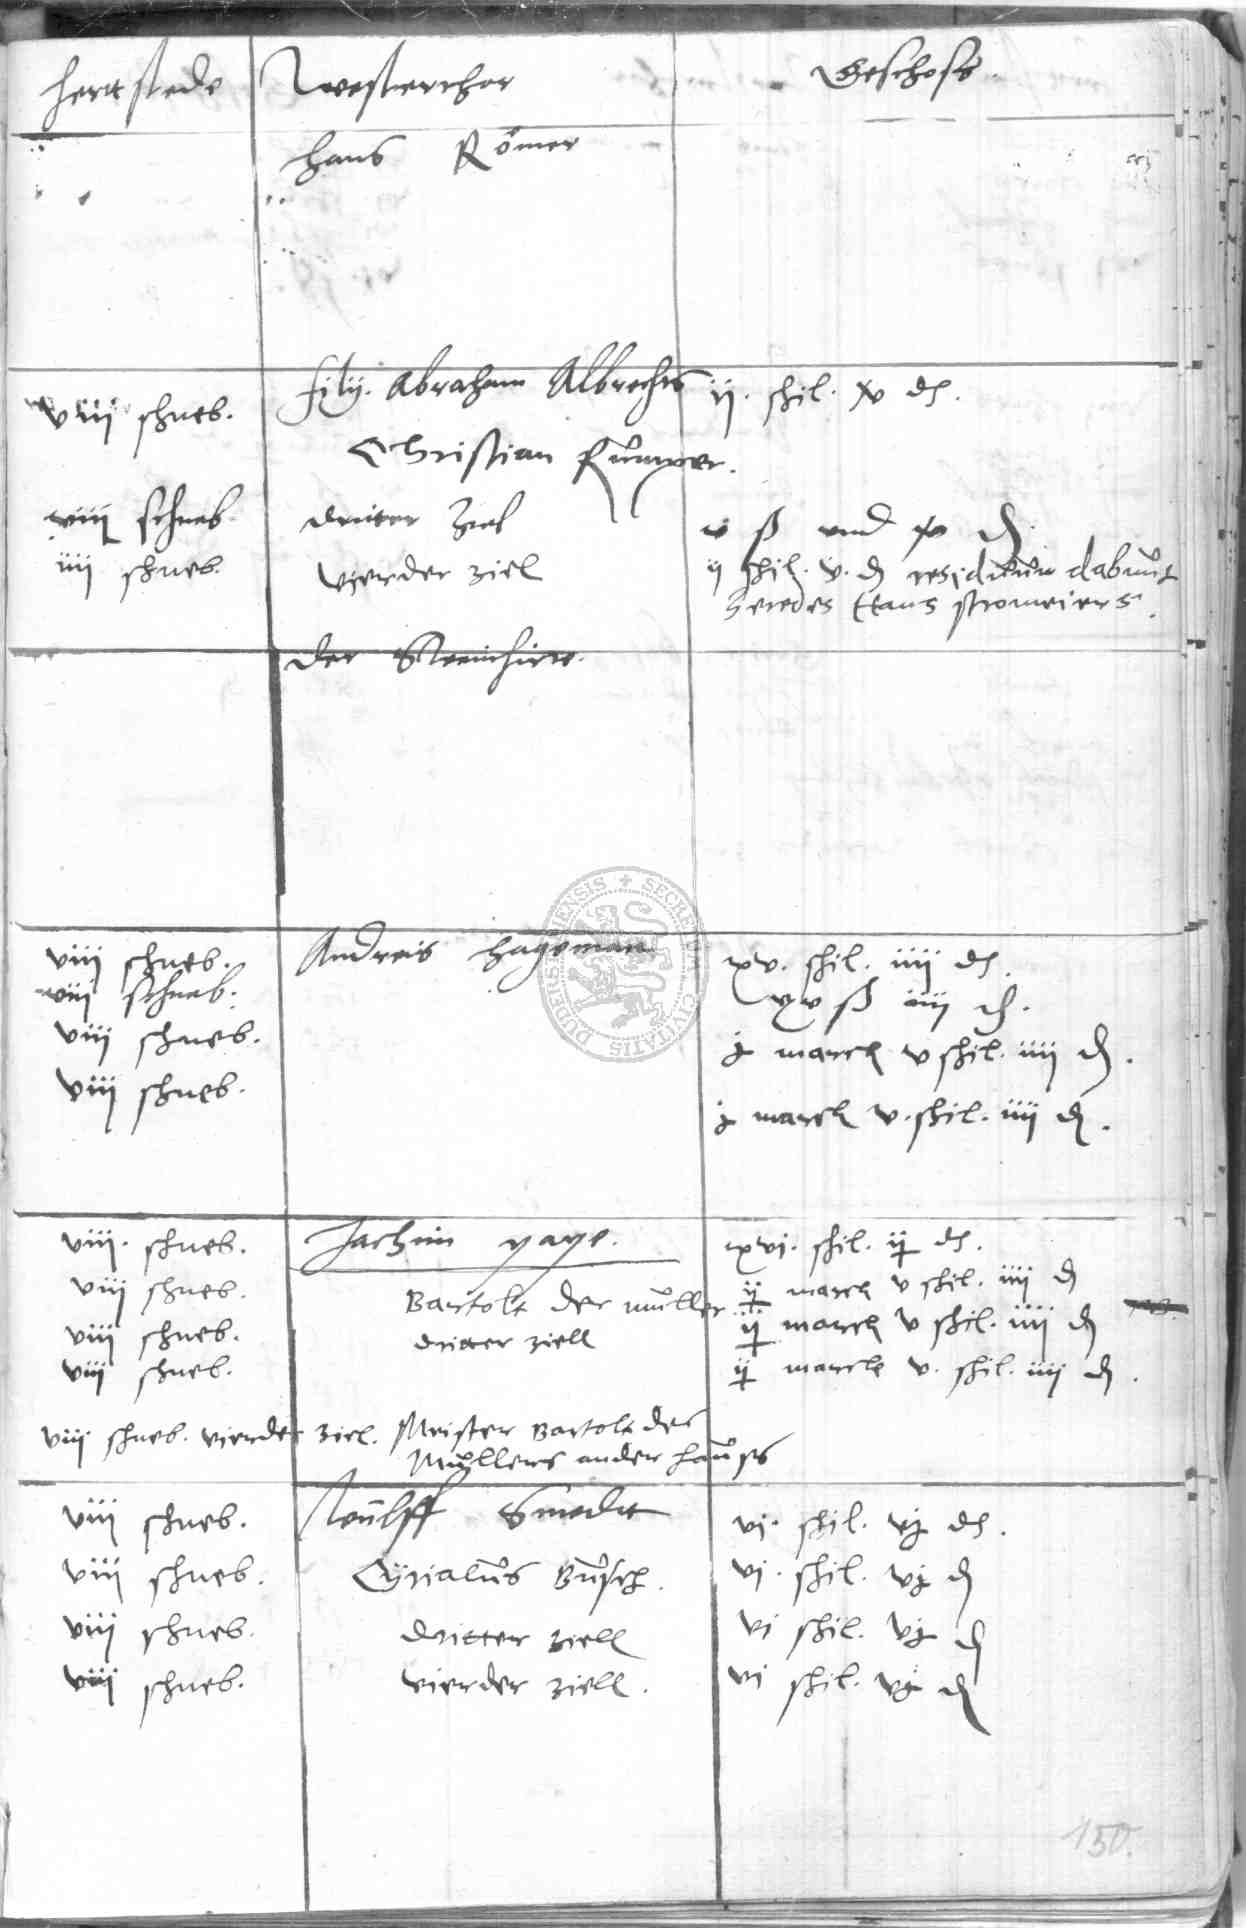 hertstede Westerthor Geschoss.
hans Römer
viii schneb. filij. Abraham Albrechts ij. shil. v d.
Christian
viij schneb dritter Ziel v ß und v d.
iiij schneb. vierder ziel ij shil. v. d residuum dabunt
heredes Hans stromeiers.
der
viij schneb. Andreis hageman xv. shil. iiij d.
viij schneb. xv ß iiij d.
viij schneb. j marck v shil. iiij d.
viij schneb. j marck v. shil. iiij d.
viij. schneb. Jachim page. xvi. shil. ij d.
viij schneb. Bartolt der müller ij marck v shil. iiij d
viij schneb. dritter ziell ij marck v shil. iiij d
viij schneb. ij marck v. shil. iiij d.
viij schneb. vierder ziel. Meister Bartolt des
Müllers ander hauss
viij schneb. Wulff Smedt vi. shil. vj d.
viij schneb. Cyriacus Busch. vi. shil. vj d
viij schneb. dritter ziell vi shil. vj d
viij schneb. vierder ziell. vi shil. vj d
150.
SECRETUM CIVITATIS DUDERSTADIENSIS